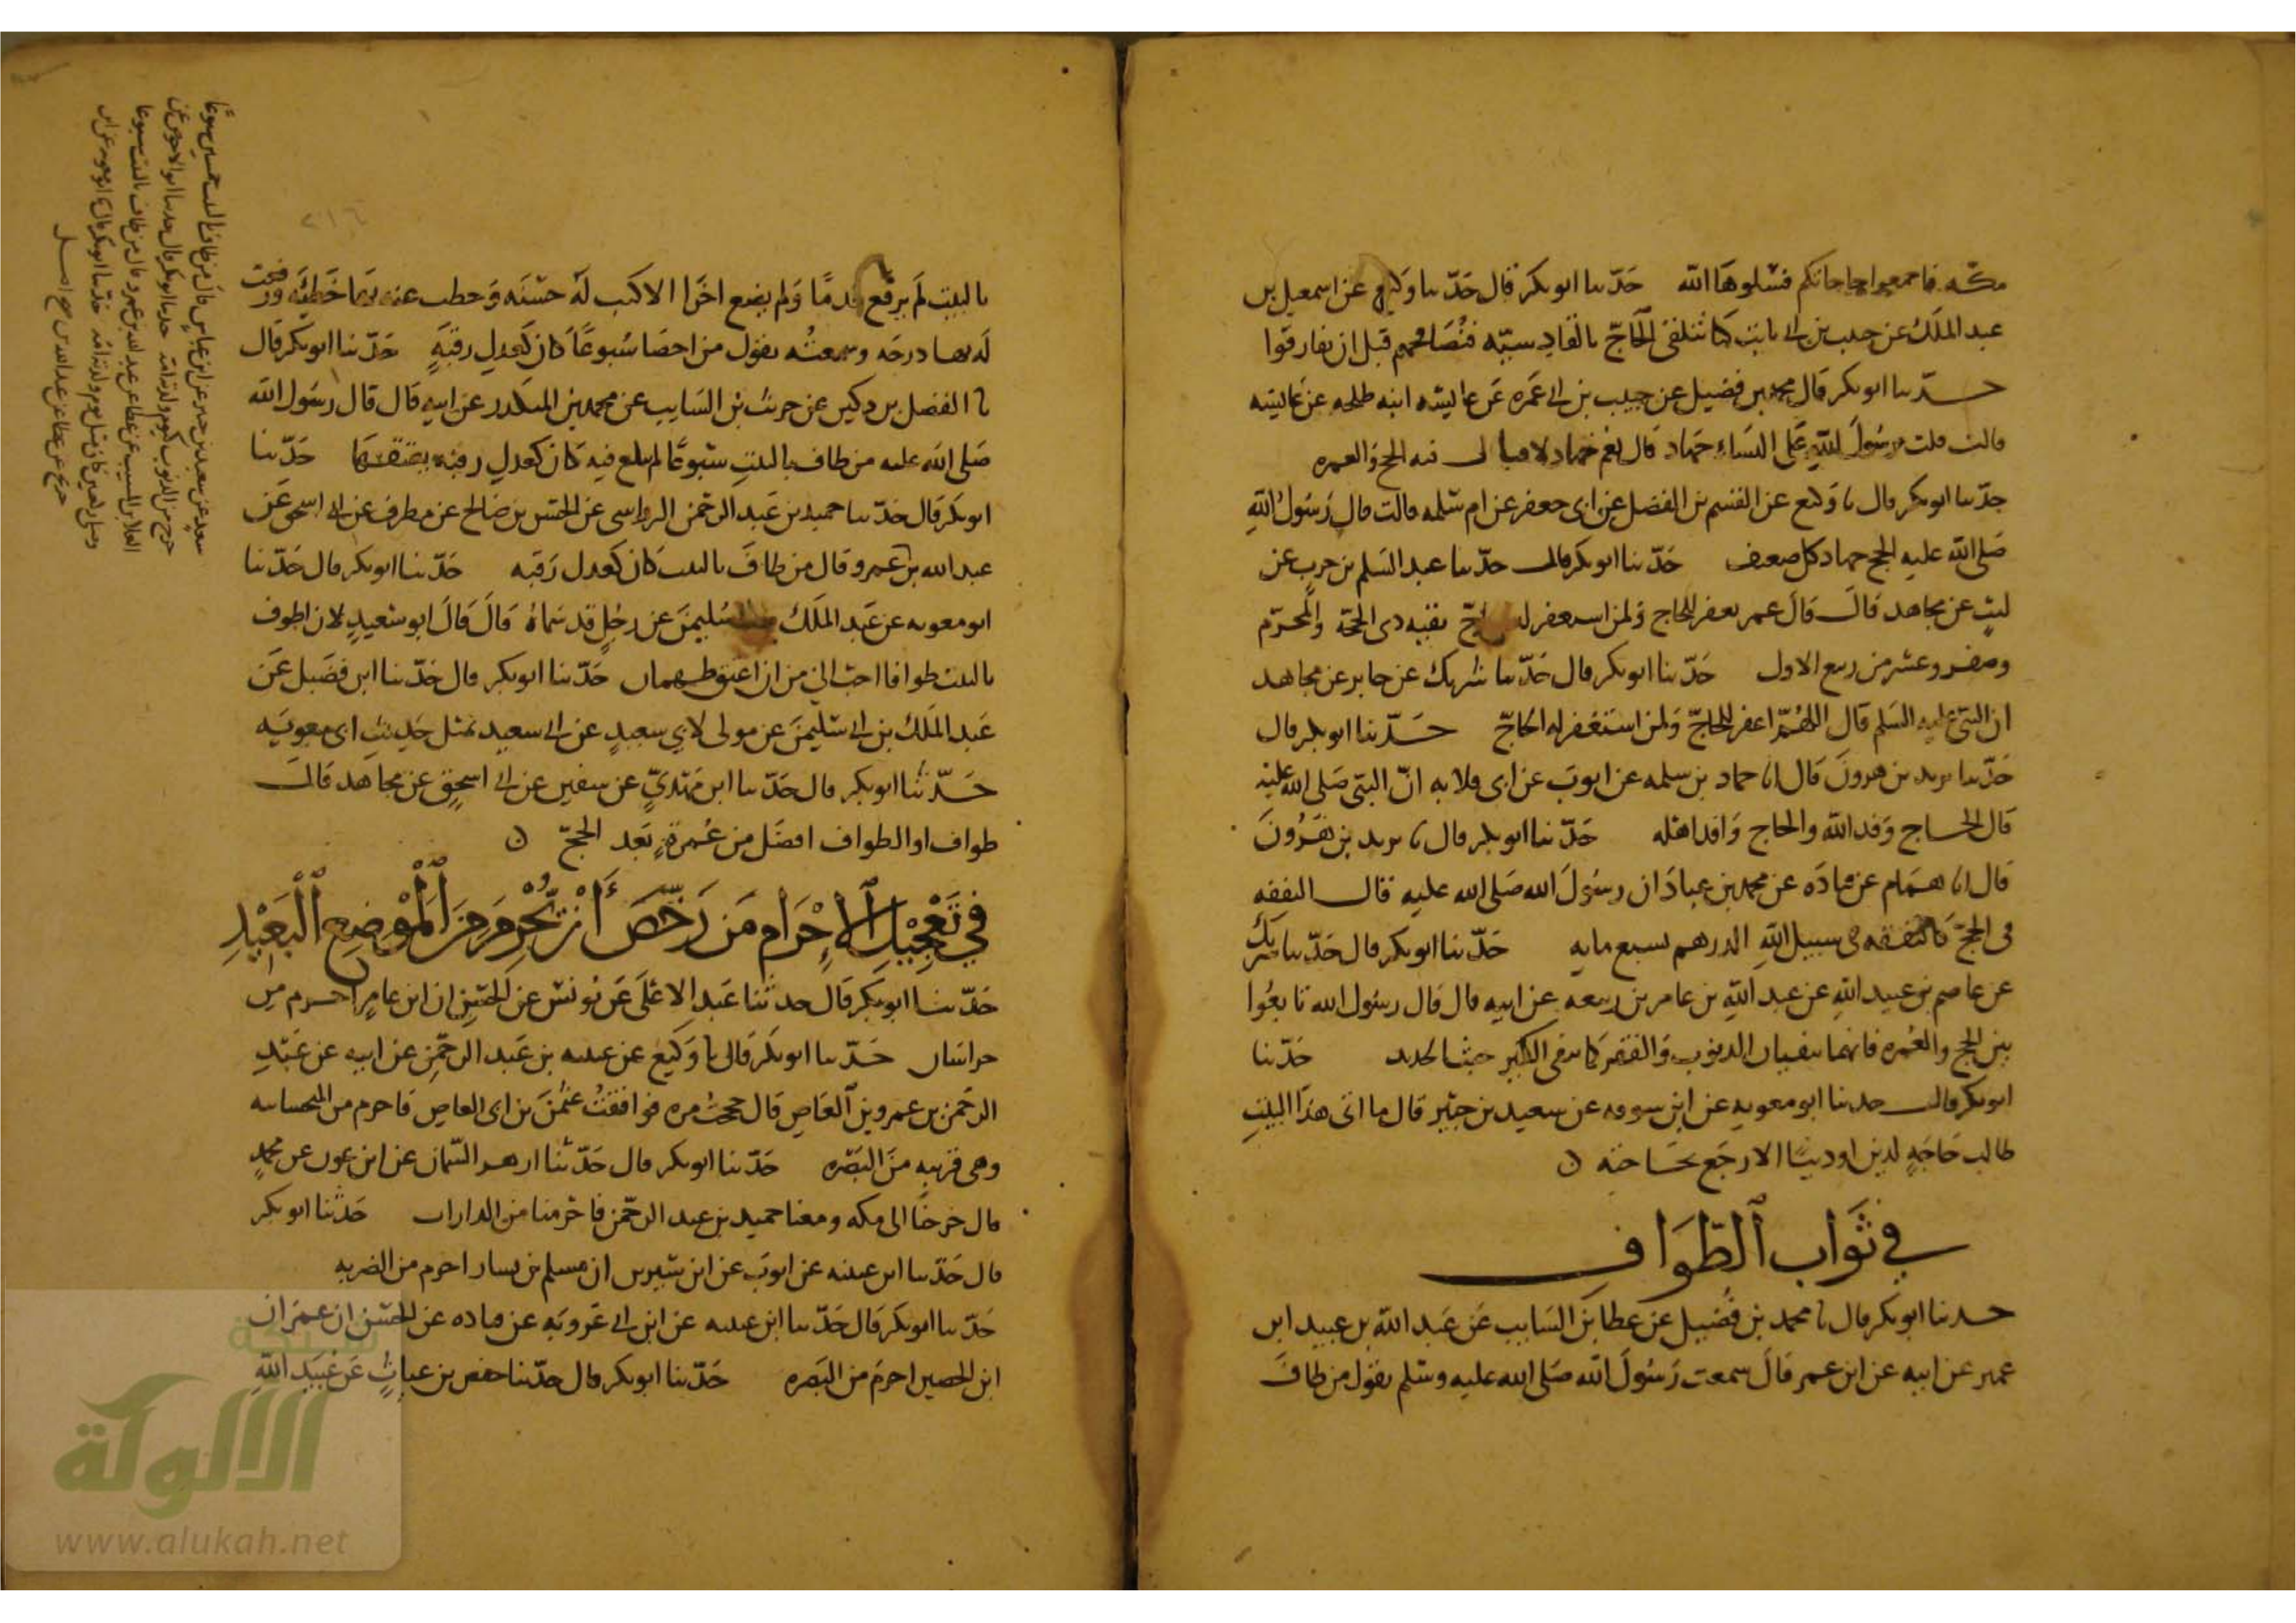 مكة فاجمعوا حاجاتكم فسلوها الله حدثنا ابو بكر قال حدثنا وكيع عن اسمعيل بن
عبد الملك عن حبيب بن ابي ثابت كنا نتلقى الحاج بالقادسيه فنصافحهم قبل ان يفارقوا
حدثنا ابو بكر قال محمد بن فضيل عن حبيب بن ابي عمره عن عائشه ابنه طلحه عن عائشه
قالت قلت يرسول الله على النساء جهاد قال نعم جهاد لا قتال فيه الحج والعمره
حدثنا ابو بكر قال نا وكيع عن القسم بن الفضل عن ابي جعفر عن ام سلمه قالت قال رسول الله
صلى الله عليه الحج جهاد كل ضعيف حدثنا ابو بكر قال حدثنا عبد السلم بن حرب عن
ليث عن مجاهد قال قال عمر يغفر للحاج ولمن استغفر له الحاج بقيه ذي الحجة والمحرم
وصفر وعشر من ربيع الاول حدثنا ابو بكر قال حدثنا شريك عن جابر عن مجاهد
ان النبي عليه السلم قال اللهم اغفر للحاج ولمن استغفر له الحاج حدثنا ابو بكر قال
حدثنا يزيد بن هرون قال انا حماد بن سلمه عن ايوب عن ابي قلابه ان النبي صلى الله عليه
قال الحاج وفد الله والحاج وافد اهله حدثنا ابو بكر قال نا يزيد بن هرون
قال انا همام عن قتاده عن محمد بن عباد ان رسول الله صلى الله عليه قال النفقه
في الحج كالنفقه في سبيل الله الدرهم بسبع مايه حدثنا ابو بكر قال حدثنا شريك
عن عاصم بن عبيد الله عن عبد الله بن عامر بن ربيعه عن ابيه قال قال رسول الله تابعوا
بين الحج والعمره فانهما ينفيان الذنوب والفقر كما ينفي الكير خبث الحديد حدثنا
ابو بكر قال حدثنا ابو معويه عن ابن سوقه عن سعيد بن جبير قال ما اتى هذا البيت
طالب حاجة لدين او دنيا الا رجع بحاجته ن
في ثواب الطواف
حدثنا ابو بكر قال نا محمد بن فضيل عن عطا بن السايب عن عبد الله بن عبيد ابن
عمير عن ابيه عن ابن عمر قال سمعت رسول الله صلى الله عليه وسلم يقول من طاف
بالبيت لم يرفع قدما ولم يضع اخرى الا كتب له حسنه وحطت عنه بها خطيئه ورفعت
له بها درجه وسمعته يقول من احصا سبوعا كان كعدل رقبة حدثنا ابو بكر قال
نا الفضل بن دكين عن حريث بن السايب عن محمد بن المنكدر عن ابيه قال قال رسول الله
صلى الله عليه من طاف بالبيت سبوعا لم يلغ فيه كان كعدل رقبه يعتقها حدثنا
ابو بكر قال حدثنا حميد بن عبد الرحمن الرواسي عن الحسن بن صالح عن مطرف عن ابي اسحق عن
عبد الله بن عمرو قال من طاف بالبيت كان كعدل رقبه حدثنا ابو بكر قال حدثنا
ابو معويه عن عبد الملك بن سليمن عن رجل قد سماه قال قال ابو سعيد لان اطوف
بالبيت طوافا احب الي من ان اعتق طهمان حدثنا ابو بكر قال حدثنا ابن فضيل عن
عبد الملك بن ابي سليمن عن مولى لابي سعيد عن ابي سعيد بمثل حديث ابي معويه
حدثنا ابو بكر قال حدثنا ابن مهدي عن سفين عن ابي اسحق عن مجاهد قال
طواف او الطواف افضل من عمرة بعد الحج ن
في تعجيل الاحرام من رخص أن تحرم من الموضع البعيد
حدثنا ابو بكر قال حدثنا عبد الاعلى عن يونس عن الحسن ان ابن عامر احرم من
خراسان حدثنا ابو بكر قال نا وكيع عن عيينه بن عبد الرحمن عن ابيه عن عبد
الرحمن بن عمرو بن العاص قال حججت مره فوافقت عثمن بن ابي العاص فاحرم من المنجشانيه
وهي قريبه من البصره حدثنا ابو بكر قال حدثنا ازهر السمان عن ابن عون عن محمد
قال خرجنا الى مكه ومعنا حميد بن عبد الرحمن فاحرمنا من الدارات حدثنا ابو بكر
قال حدثنا ابن عيينه عن ايوب عن ابن سيرين ان مسلم بن يسار احرم من الضريه
حدثنا ابو بكر قال حدثنا ابن عيينه عن ابن ابي عروبه عن قتاده عن الحسن ان عمران
ابن الحصين احرم من البصره حدثنا ابو بكر قال حدثنا حفص بن غياث عن عبيد الله
سعيد عن سعيد بن جبير عن ابن عباس قال من طاف بالبيت خمسين سبوعا
خرج من الذنوب كيوم ولدته امه حدثنا ابو بكر قال حدثنا ابو الاحوص عن
العلا بن المسيب عن عطا عن عبد الله بن عمرو قال من طاف بالبيت سبوعا
وصلى ركعتين كان مثل يوم ولدته امه حدثنا ابو بكر قال نا ابو معويه عن ابن
جريج عن عطا عن عبد الله صح اصل
٢١٦
شبكة
الألوكة
www.alukah.net